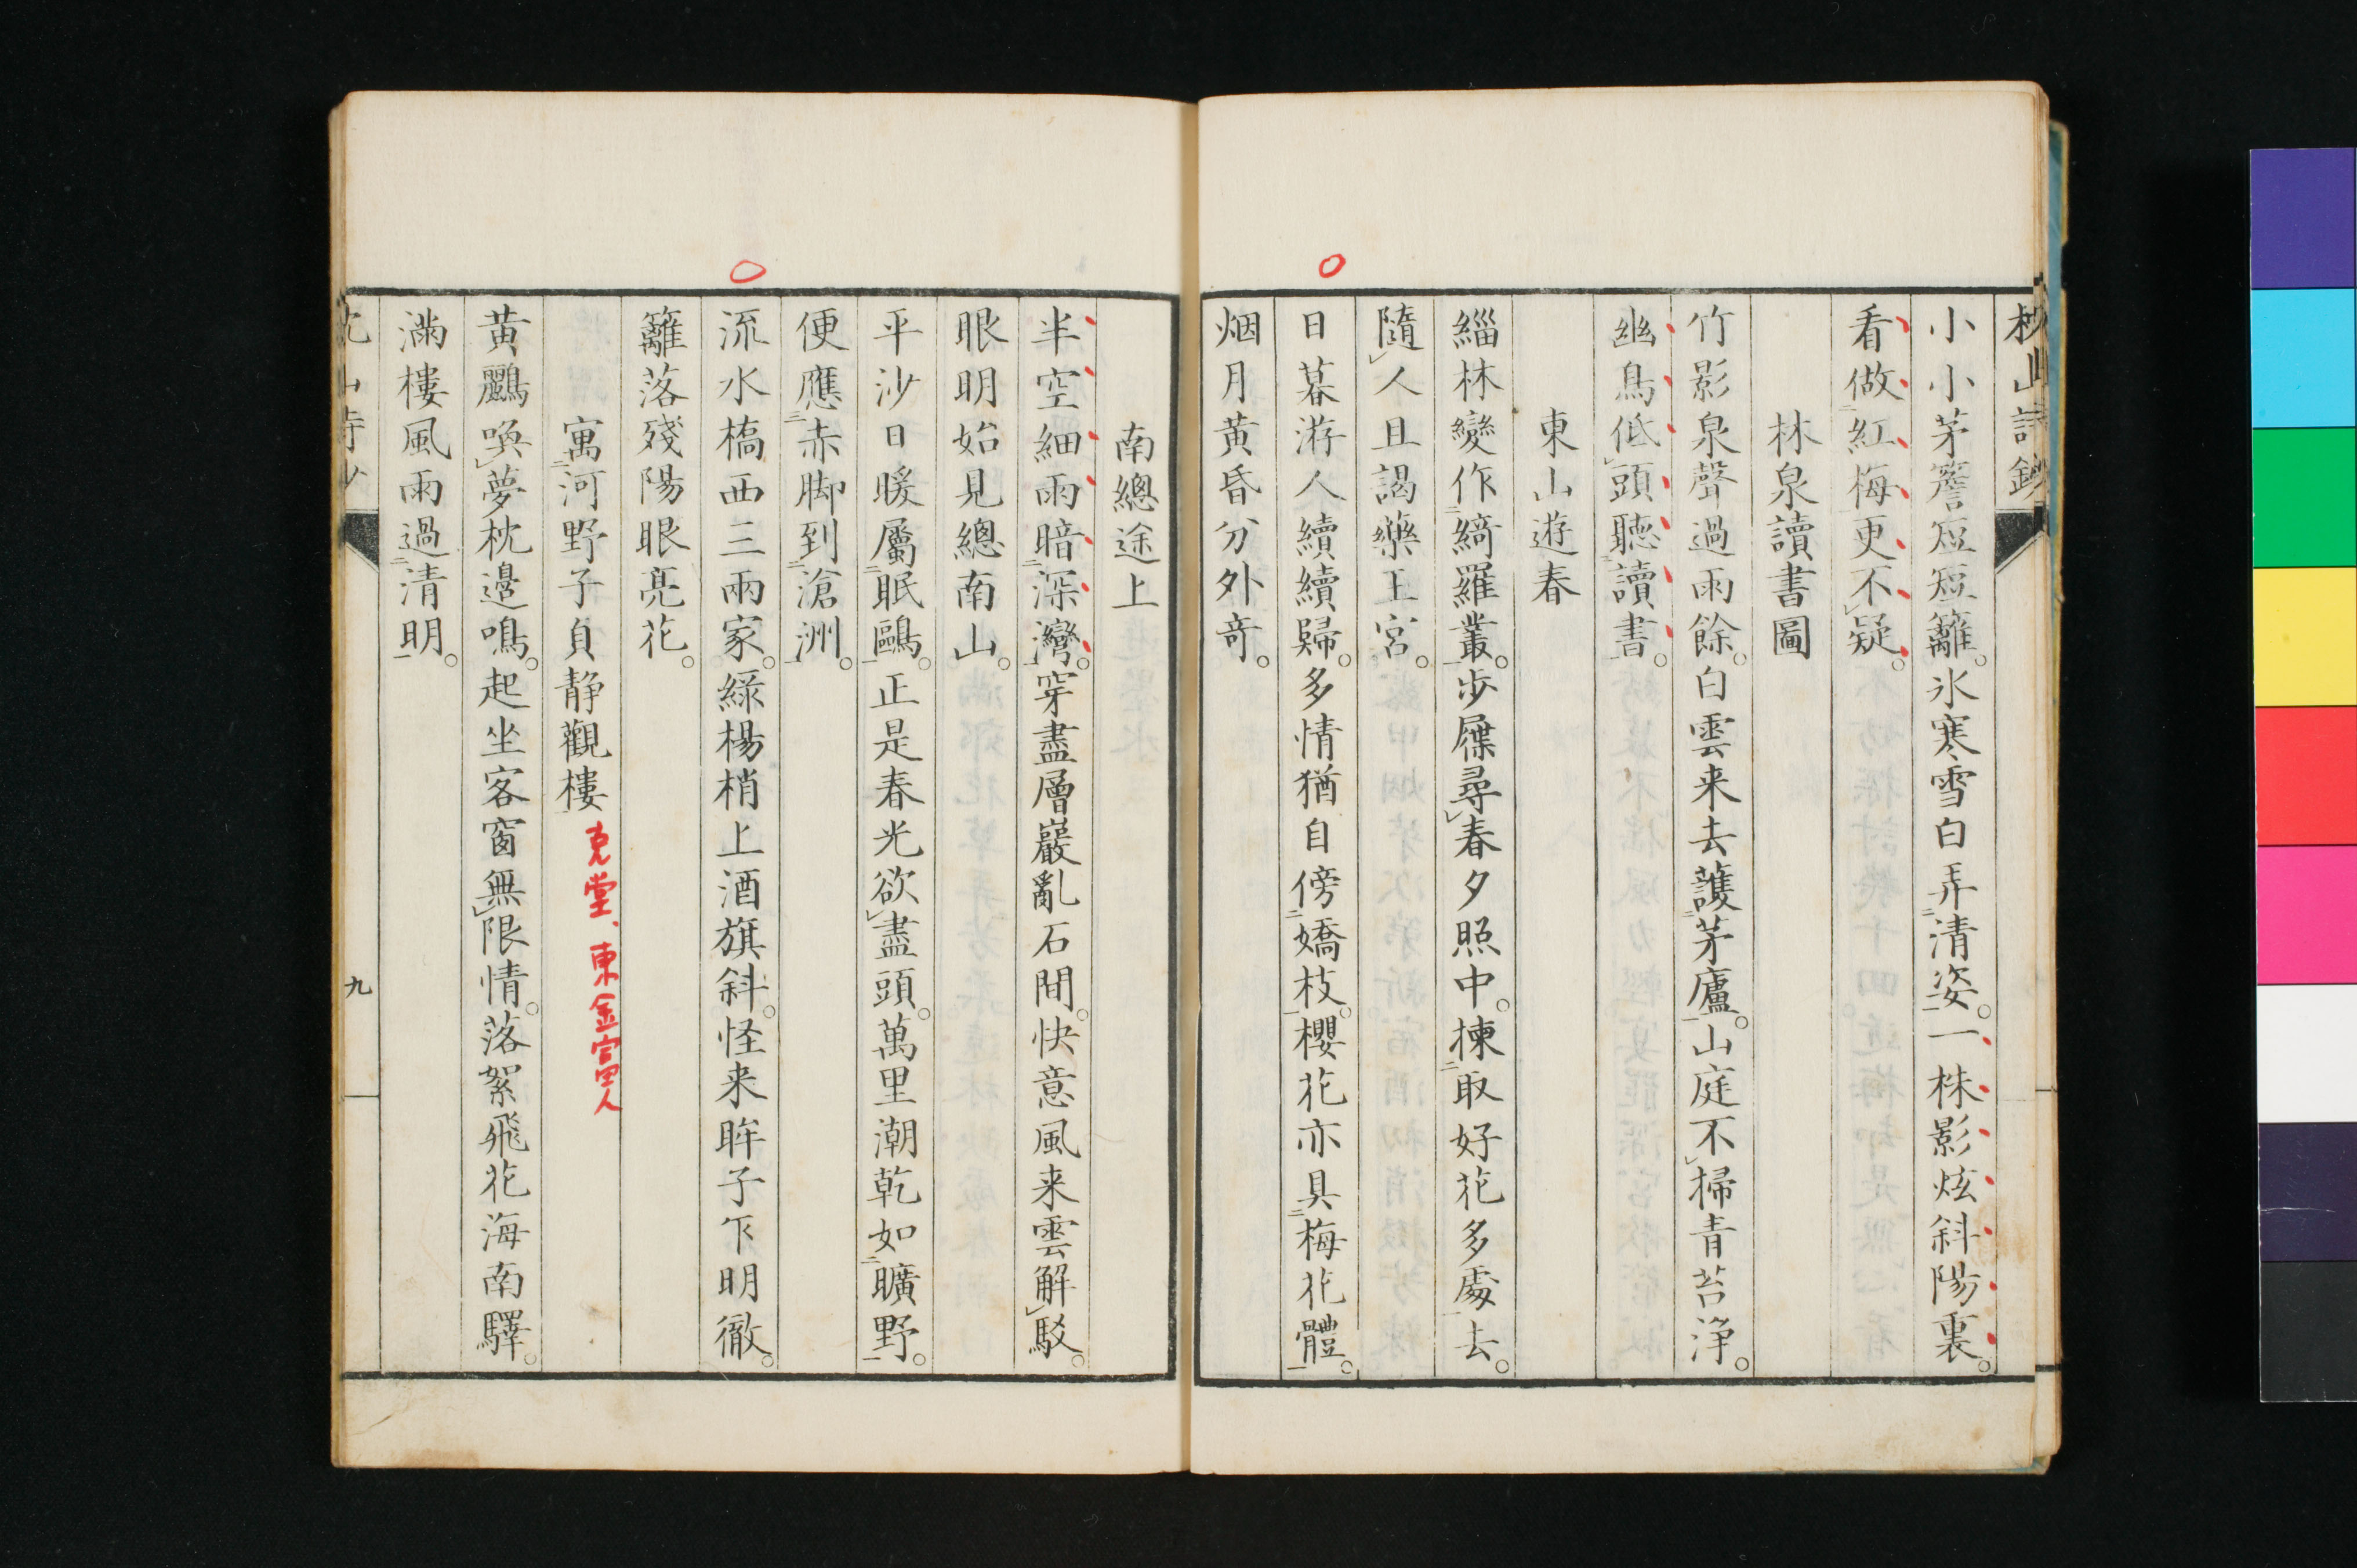 枕山詩鈔
小小茅簷短短籬。氷寒雪白弄清姿。一株影炫斜陽裏。
看做紅梅更不疑。
林泉讀書圖
竹影泉聲過雨餘。白雲来去護茅廬。山庭不掃青苔浄。
幽鳥低頭聽讀書。
東山遊春
緇林變作綺羅叢。步屧尋春夕照中。揀取好花多處去。
隨人且謁藥王宮。
日暮游人續續歸。多情猶自傍嬌枝。櫻花亦具梅花體。
烟月黄昏分外奇。
南總途上
半空細雨暗深灣。穿盡層巖亂石間。快意風来雲解駁。
眼明始見總南山。
平沙日暖屬眠鷗。正是春光欲盡頭。萬里潮乾如曠野。
便應赤脚到滄洲。
流水橋西三兩家。緑楊梢上酒旗斜。怪来眸子乍明徹。
籬落殘陽眼亮花。
寓河野子貞静觀樓 克堂、東金富人
黄鸝喚夢枕邉鳴。起坐客窗無限情。落絮飛花海南驛。
滿樓風雨過清明。
九